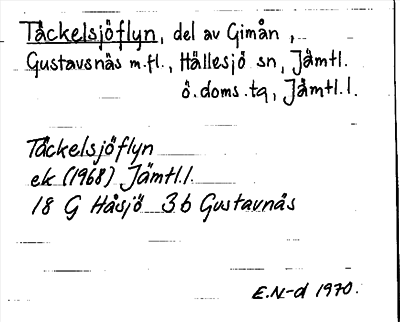 Täckelsjöflyn, del av Gimån,
Gustavsnäs m.fl., Hällesjö sn, Jämtl.
ö. doms. tq, Jämtl. l.
Täckelsjöflyn
ek (1968) Jämtl. l.
18 G Håsjö 3b Gustavnäs
E.N-d 1970.